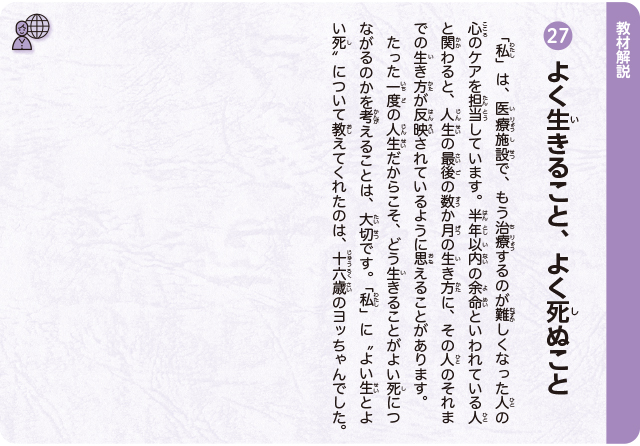 教材解説
27 よく生きること、よく死ぬこと
「私」は、医療施設で、もう治療するのが難しくなった人の
心のケアを担当しています。半年以内の余命といわれている人
と関わると、人生の最後の数か月の生き方に、その人のそれま
での生き方が反映されているように思えることがあります。
たった一度の人生だからこそ、どう生きることがよい死につ
ながるのかを考えることは、大切です。「私」に〝よい生とよ
い死〟について教えてくれたのは、十六歳のヨッちゃんでした。